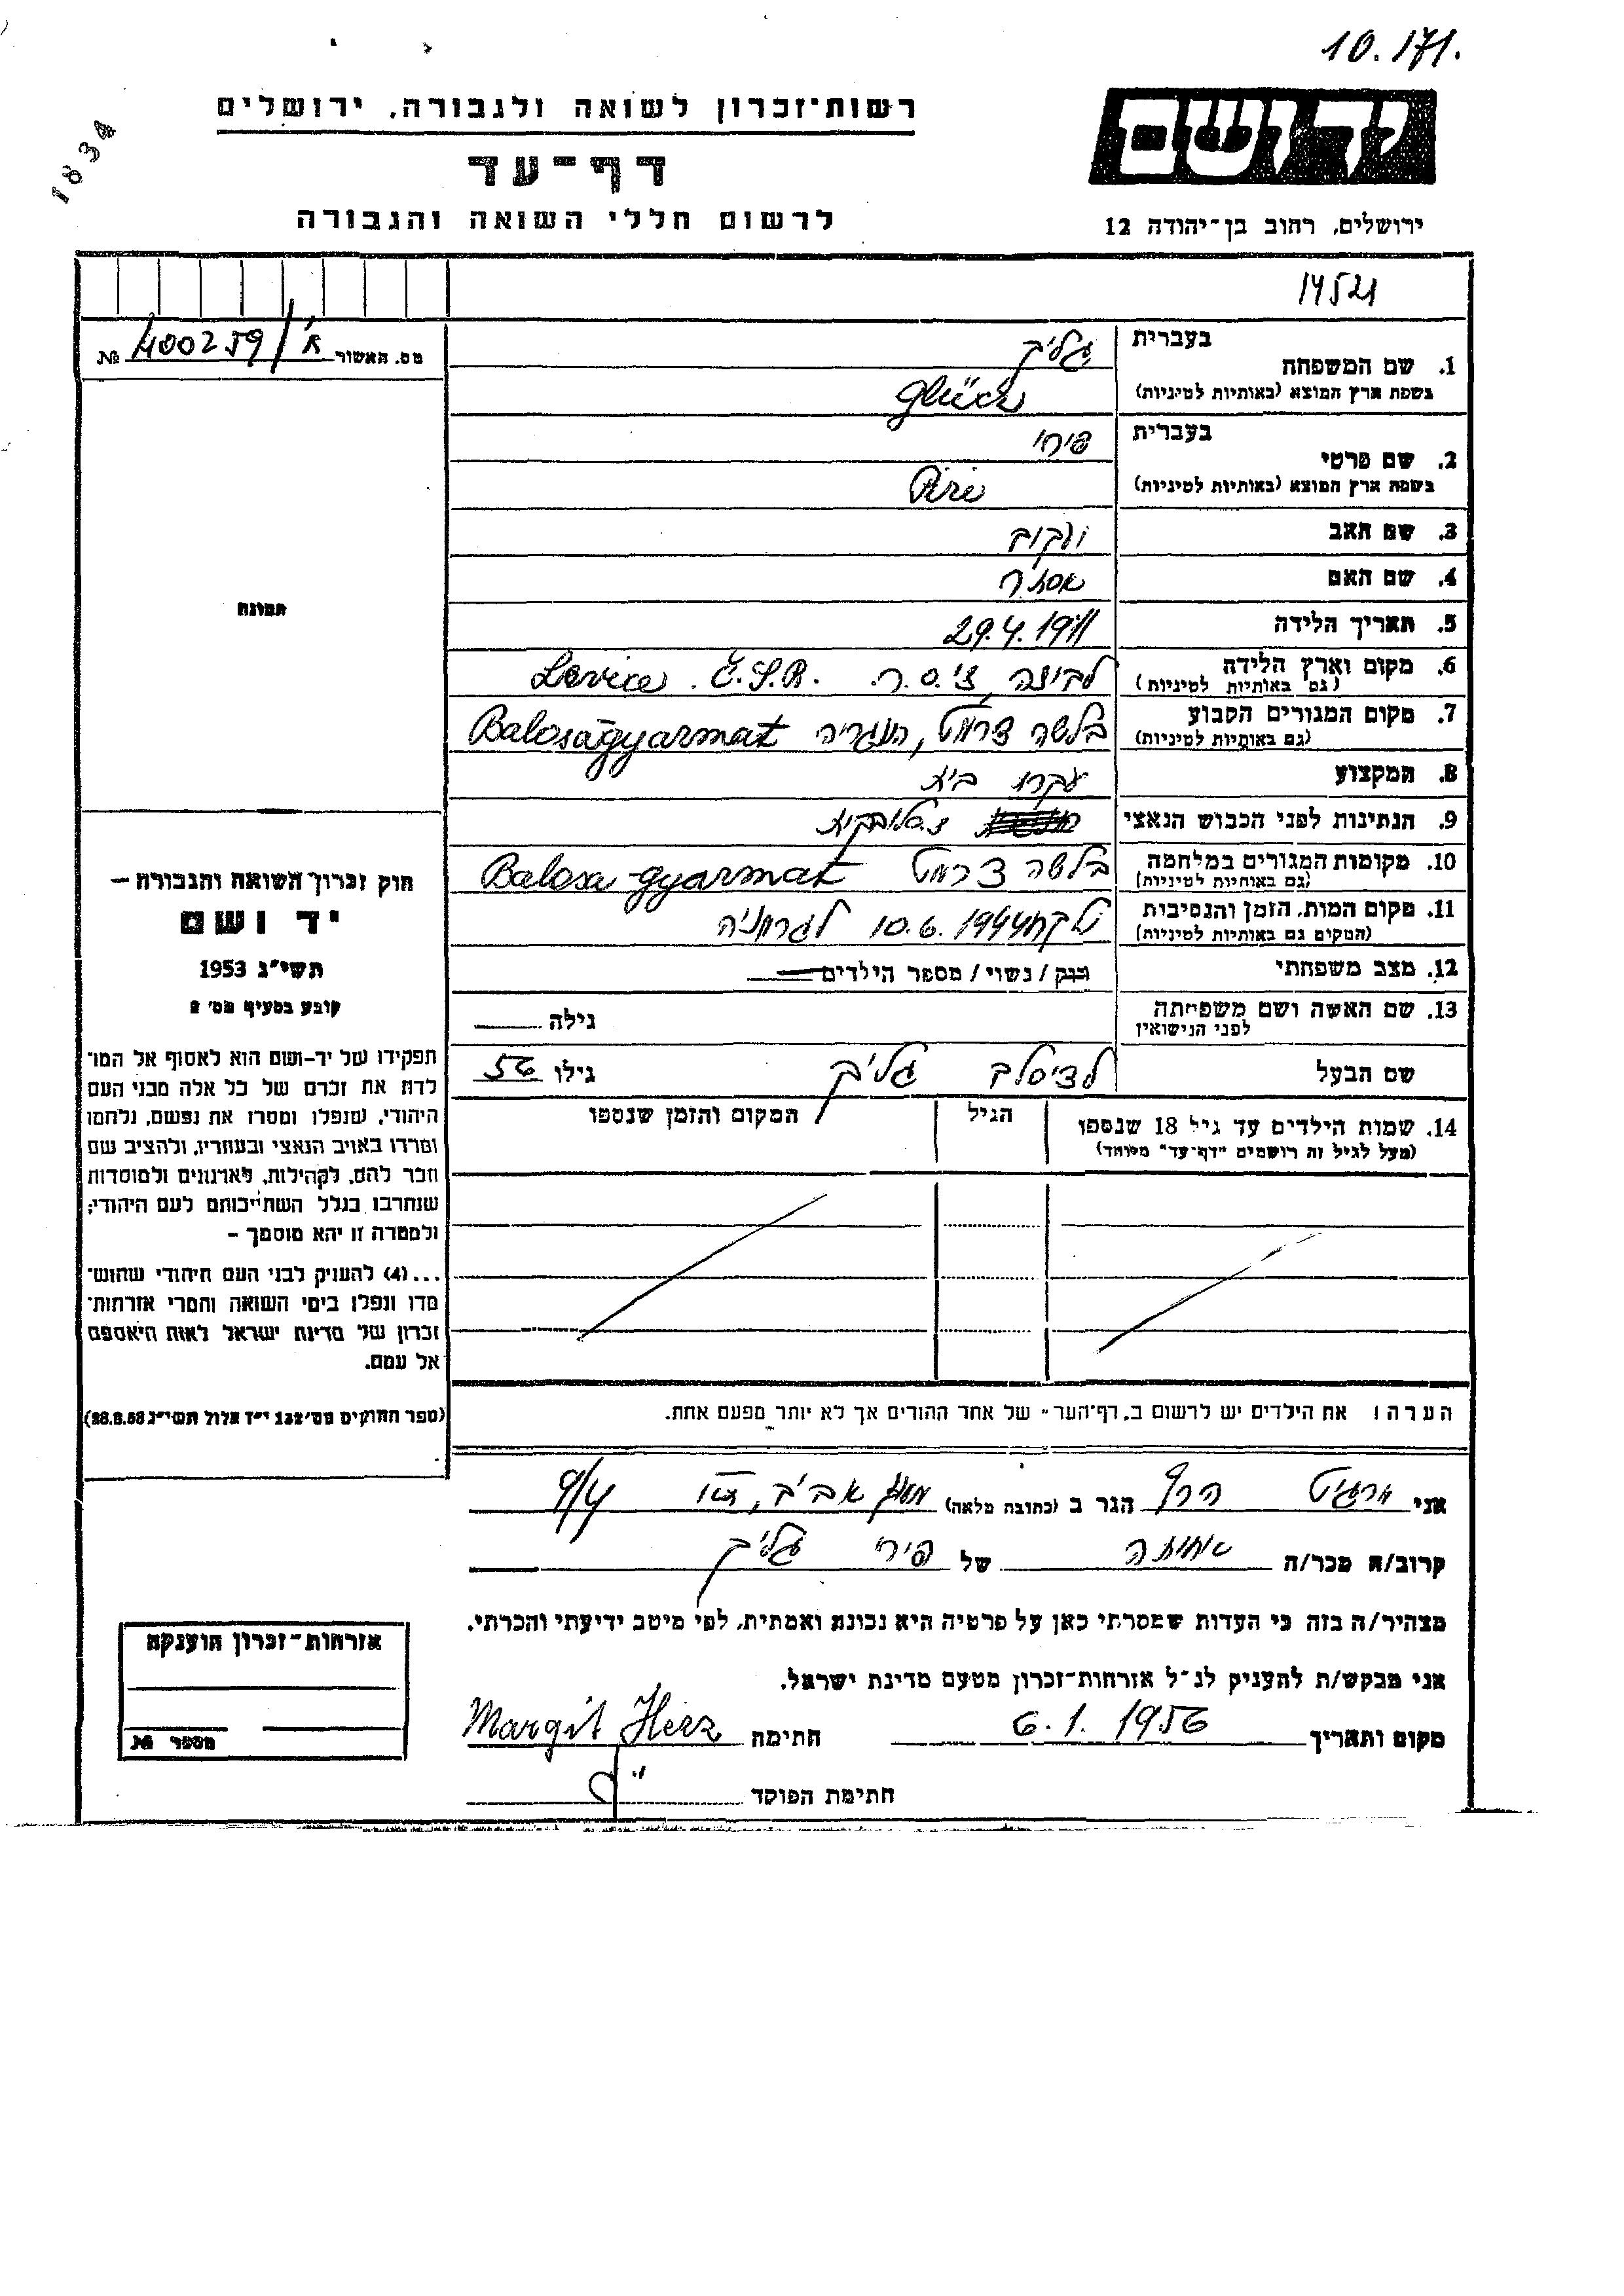 10.171.
1834
רשות־זכרון לשואה ולגבורה, ירושלים
דף־עד
לרשום חללי השואה והגבורה
יד ושם
ירושלים, רחוב בן־יהודה 12
14521
מס. תאשור 400259/א' №
1. שם המשפחה בעברית גליק
בשפת ארץ המוצא (באותיות לטיניות) Glück
2. שם פרטי בעברית פירי
בשפת ארץ המוצא (באותיות לטיניות) Piri
3. שם האב יעקב
4. שם האם אסתר
5. תאריך הלידה 29.4.1911
6. מקום וארץ הלידה לביצה, צ'.ס.ר. Levice. Č.S.R.
(גם באותיות לטיניות)
7. מקום המגורים הקבוע Balosagyarmat הונגריה
(גם באותיות לטיניות)
8. המקצוע עקרת בית
9. הנתינות לפני הכבוש הנאצי
10. מקומות המגורים במלחמה Balosa gyarmat
(גם באותיות לטיניות)
11. מקום המות, הזמן והנסיבות נלקחה 10.6.1944 לגרמניה
(המקום גם באותיות לטיניות)
12. מצב משפחתי רווק / נשוי / מספר הילדים
13. שם האשה ושם משפחתה לפני הנישואין גילה
שם הבעל גליק גילו 56
14. שמות הילדים עד גיל 18 שנספו הגיל המקום והזמן שנספו
(מעל לגיל זה רושמים "דף־עד" מיוחד)
הערה: את הילדים יש לרשום ב"דף־העד" של אחד ההורים אך לא יותר מפעם אחת.
תמונה
חוק זכרון השואה והגבורה —
יד ושם
תשי״ג 1953
קובע בסעיף מס׳ 2
תפקידו של יד-ושם הוא לאסוף אל המו־
לדת את זכרם של כל אלה מבני העם
היהודי, שנפלו ומסרו את נפשם, נלחמו
ומרדו באויב הנאצי ובעוזריו, ולהציב שם
וזכר להם, לקהילות, לארגונים ולמוסדות
שנחרבו בגלל השתייכותם לעם היהודי;
ולמטרה זו יהא מוסמך –
...(4) להעניק לבני העם היהודי שהוש־
מדו ונפלו בימי השואה והמרי אזרחות־
זכרון של מדינת ישראל לאות היאספם
אל עמם.
(ספר החוקים מס׳ 132 י״ז אלול תשי״ג 28.8.53)
אני מרגיט הרץ הגר ב (כתובת מלאה) 4/9
קרוב/ה מכר/ה אחותה של פירי גליק
מצהיר/ה בזה כי העדות שמסרתי כאן על פרטיה היא נכונה ואמתית, לפי מיטב ידיעתי והכרתי.
אני מבקש/ת להעניק לנ״ל אזרחות־זכרון מטעם מדינת ישראל.
מקום ותאריך 6.1.1956 חתימה Margit Herz
חתימת הפוקד
אזרחות־זכרון הוענקה
מספר №